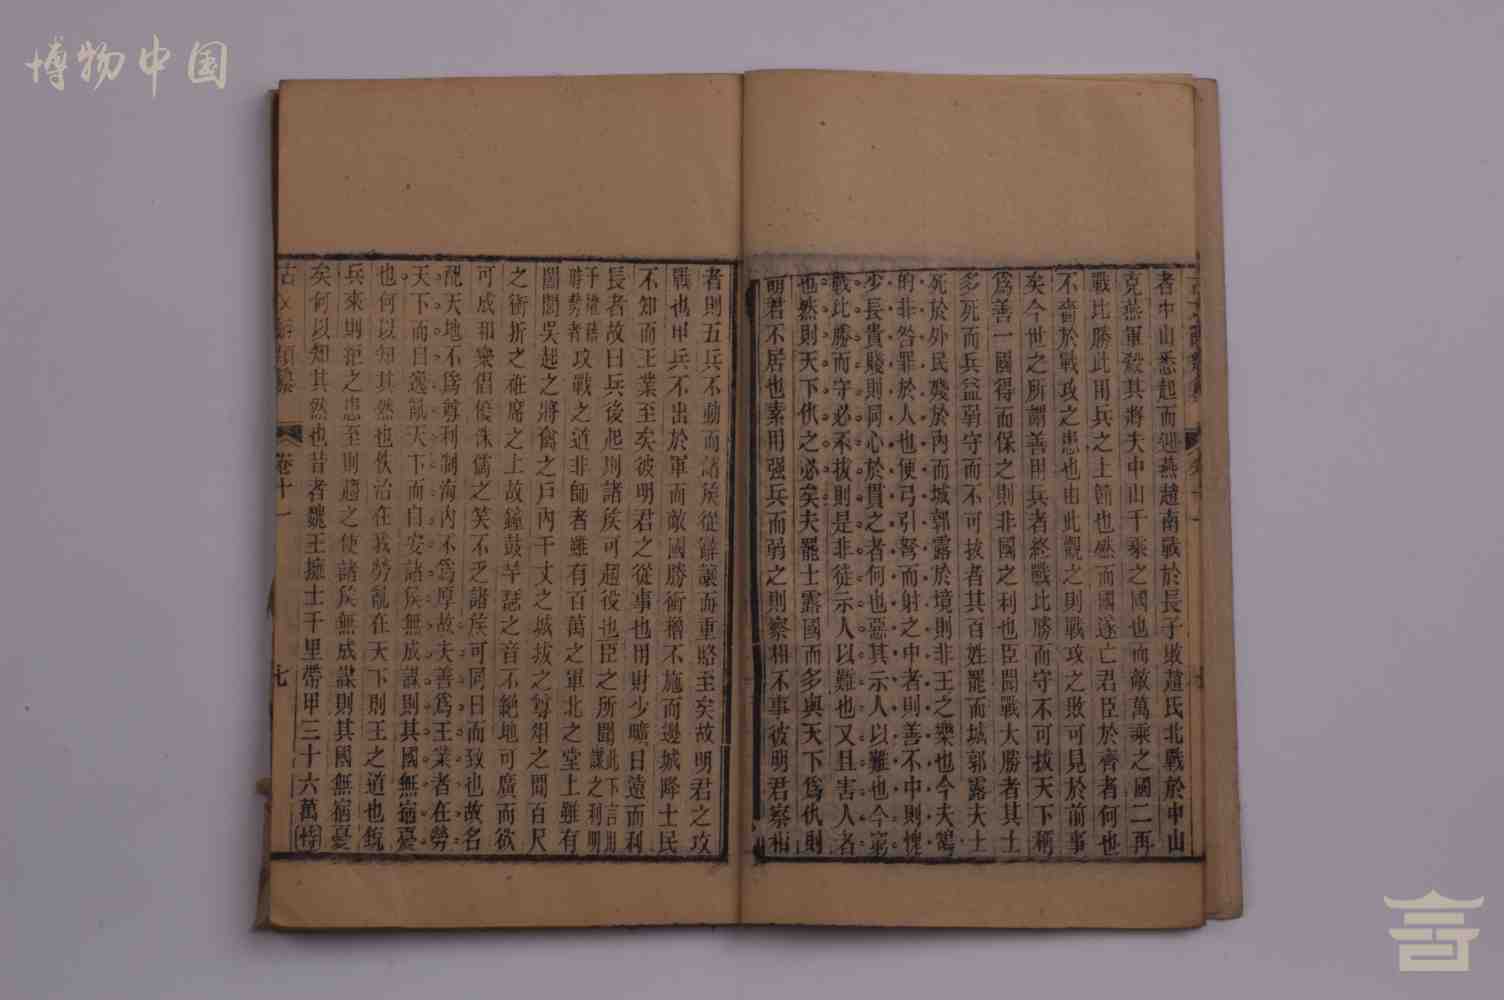 博物中国
者中山悉起而迎燕趙南戰於長子敗趙氏北戰於中山
克燕軍殺其將夫中山千乘之國也而敵萬乘之國二再
戰比勝此用兵之上節也然而國遂亡君臣於齊者何也
不嗇於戰攻之患也由此觀之則戰攻之敗可見於前事
矣今世之所謂善用兵者終戰比勝而守不可拔天下稱
爲善一國得而保之則非國之利也臣聞戰大勝者其士
多死而兵益弱守而不可拔者其百姓罷而城郭露夫士
死於外民殘於內而城郭露於境則非王之樂也今夫鵠
的非咎罪於人也便弓引弩而射之中者則善不中則愧
少長貴賤則同心於貫之者何也惡其示人以難也今窮
戰比勝而守必不拔則是非徒示人以難也又且害人者
也然則天下仇之必矣夫罷士露國而多與天下爲仇則
明君不居也素用强兵而弱之則察相不事彼明君察相
者則五兵不動而諸矦從辭讓而重賂至矣故明君之攻
戰也甲兵不出於軍而敵國勝衝櫓不施而邊城降士民
不知而王業至矣彼明君之從事也用財少曠日遠而利
長者故曰兵後起則諸矦可趨役也臣之所聞此下言用謀之利明
于權藉時勢者攻戰之道非師者雖有百萬之軍北之堂上雖有
闔閭吳起之將禽之戶內千丈之城拔之尊俎之間百尺
之衝折之衽席之上故鐘鼓竽瑟之音不絕地可廣而欲
可成和樂倡優侏儒之笑不乏諸矦可同日而致也故名
配天地不爲尊利制海內不爲厚故夫善爲王業者在勞
天下而自逸亂天下而自安諸矦無成謀則其國無宿憂
也何以知其然也佚治在我勞亂在天下則王之道也銳
兵來則拒之患至則趨之使諸矦無成謀則其國無宿憂
矣何以知其然也昔者魏王擁土千里帶甲三十六萬恃
古文辭類纂 卷十一 七